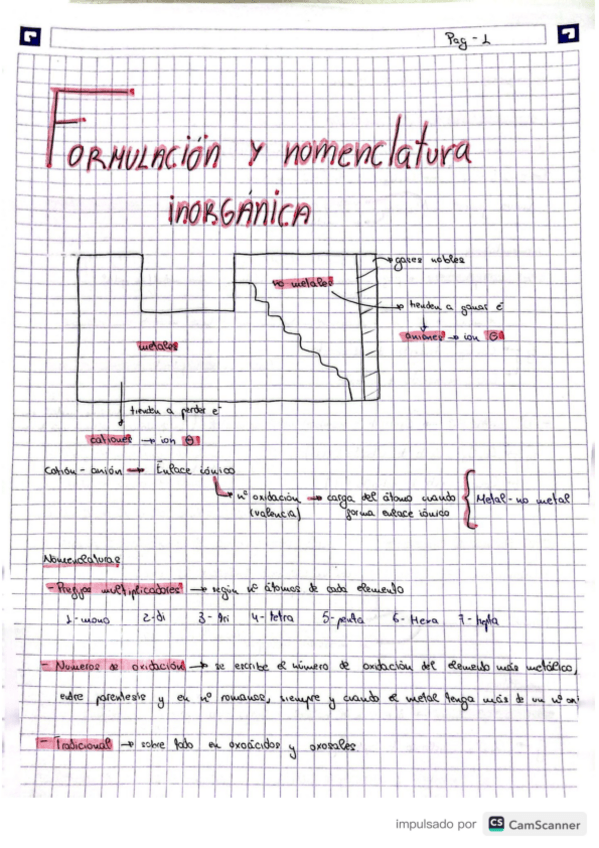 Pag - 1
FORMULACIÓN Y nomenclatura
INORGÁNICA
gases nobles
no metales
tienden a ganar e-
aniones → ion ⊖
metales
tienden a perder e-
cationes → ion ⊕
Catión - anión → Enlace iónico
nº oxidación → carga del átomo cuando { Metal - no metal
(valencia) forma enlace iónico
Nomenclaturas
- Prefijos multiplicadores → según nº átomos de cada elemento
1- mono 2- di 3- tri 4- tetra 5- penta 6- Hexa 7- hepta
- Números de oxidación → se escribe el número de oxidación del elemento más metálico,
entre paréntesis y en nº romanos, siempre y cuando el metal tenga más de un nº oxi
- Tradicional → sobre todo en oxoácidos y oxosales
impulsado por CS CamScanner